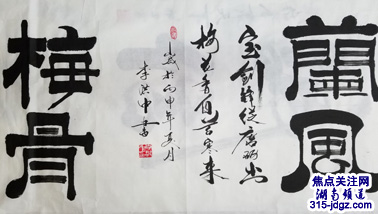 蘭風
寶劍鋒從磨砺出
梅花香自苦寒来
歲於丙申年夏月
李洪中書
梅骨
焦点关注网
湖南频道
315-jdgz.com